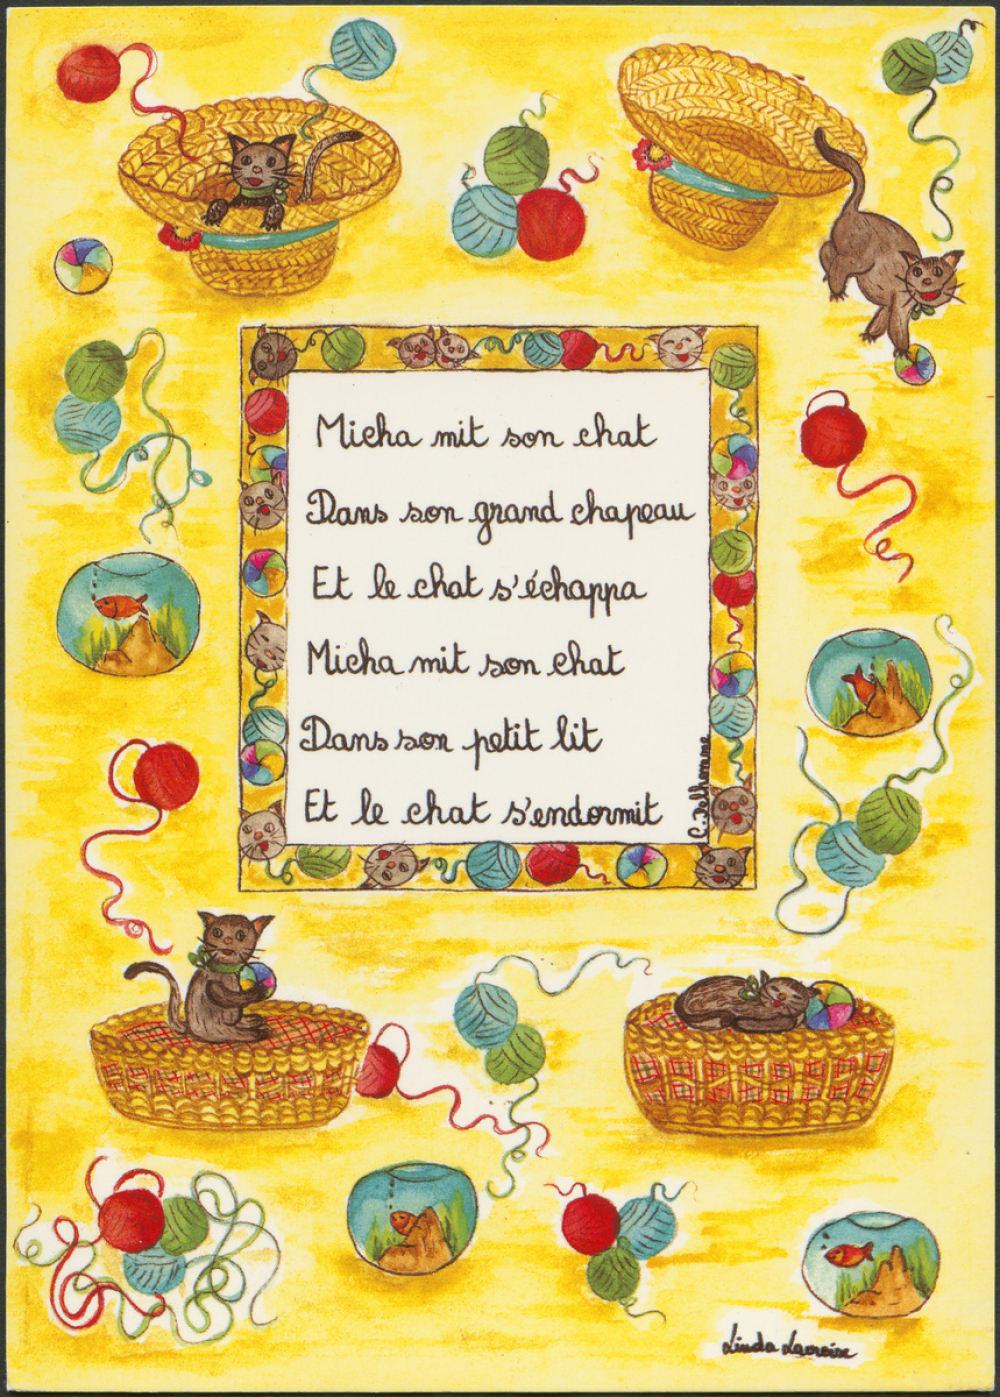 Micha mit son chat
Dans son grand chapeau
Et le chat s'échappa
Micha mit son chat
Dans son petit lit
Et le chat s'endormit
C. Delhomme
Linda Lacroix